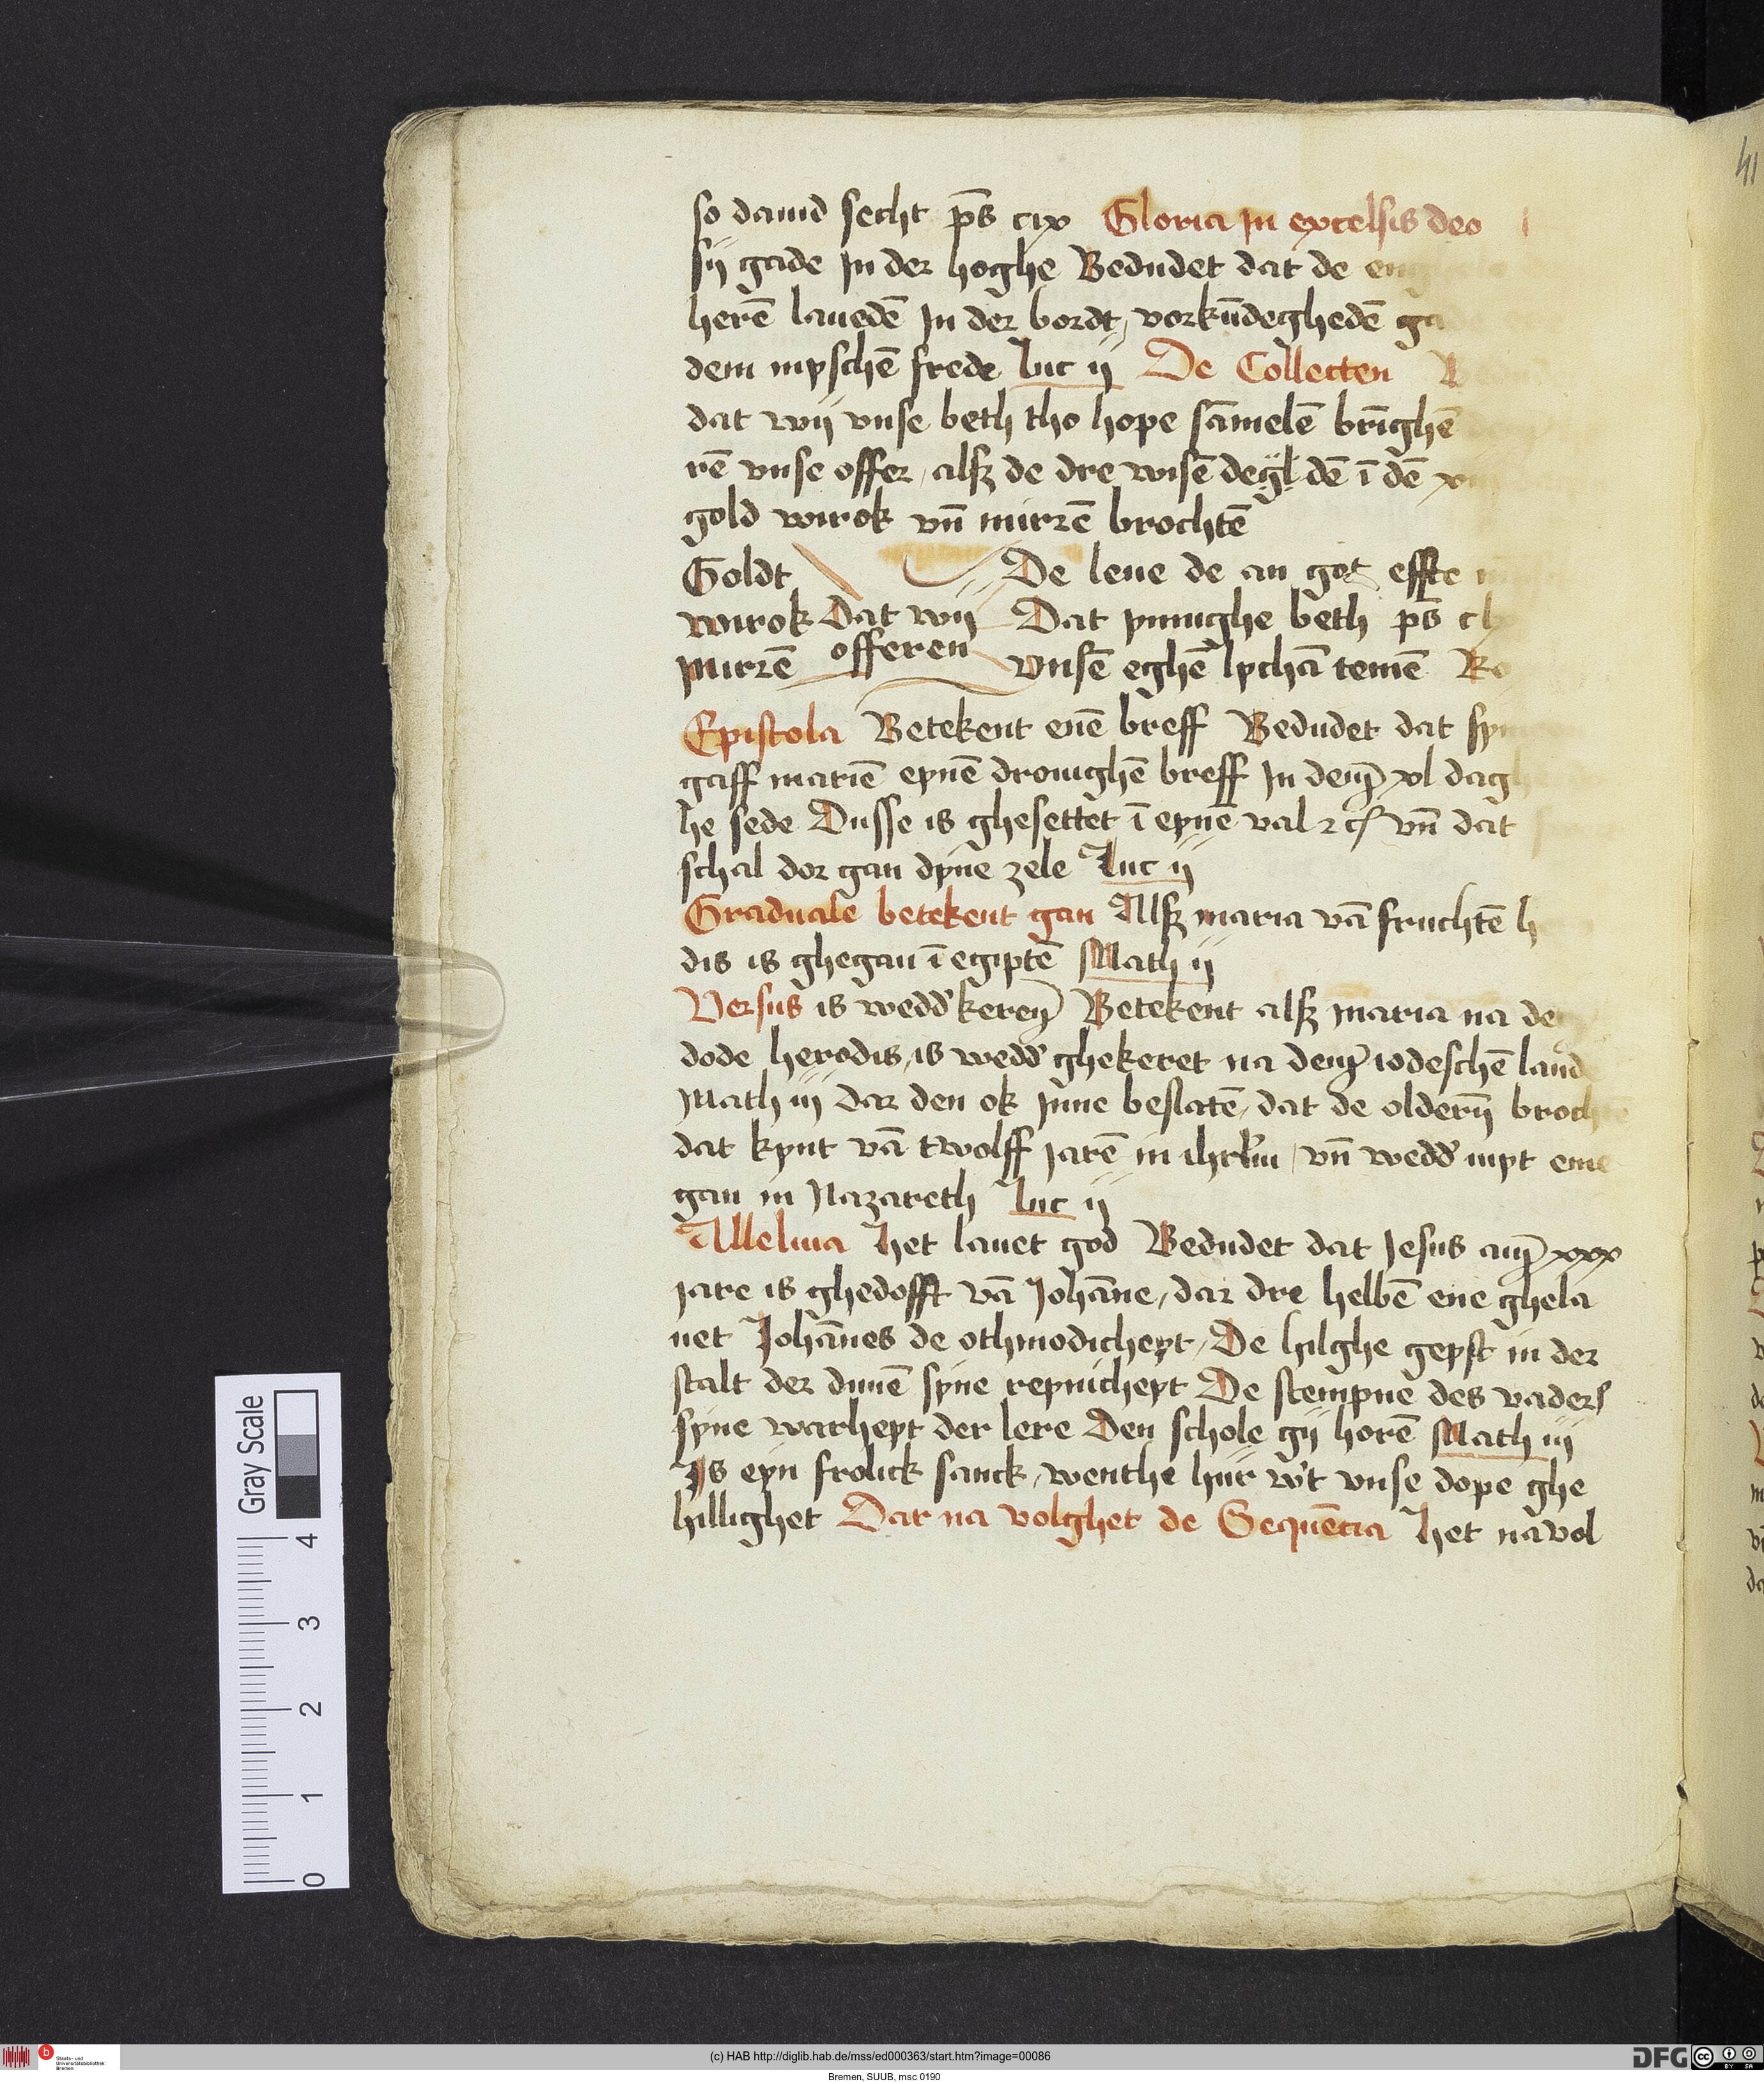 so dauid secht ps̄ cix Gloria in excelsis deo
sij gade in der hoghe Bedudet dat de
herē lauedē in der bordt, vorkūdeghedē
dem mȳschē frede luc ij De Collecten
dat wij vnse beth tho hope sāmelē brīghē
rē vnse offer, alsz de dre wisē degħ dē ī dē
gold wirok vn̄ mirrē brochtē
Goldt De leue de an got effte
wirok dat wij Dat ynnighe beth ps̄
mirrē offeren vnsē eghē lychā temē
Epistola Betekent enē breff Bedudet dat
gaff mariē eynē drouighē breff in dem xl
he sede Dusse is ghesettet ī eynē val vn̄ dat
schal dor gan dyne zele Luc ij
Graduale betekent gan Alsz maria vā fruchtē
dis is ghegan ī egiptē Math ij
Versus is wedd' keren Betekent alsz maria na
dode herodis, is wedd' ghekeret na dem iodeschē
Math iij dar den ok ynne beslatē, dat de oldern
dat kynt vā twolff jarē in ihrl'm, vn̄ wedd' myt
gan in Nazareth luc ij
Alleluia het lauet god Bedudet dat Jesus am xxx
jare is ghedofft vā Johāne, dar dre helbē ene ghela
uet Johānes de othmodicheyt, De hilghe geyst in der
stalt der duuē syne reynicheyt De stempne des vaders
syne warheyt der lere Den schole gij horē Math iij
Is eyn frolick sanck, wenthe hur w't vnse dope ghe
hillighet Dar na volghet de Sequēcia het na vol
Gray Scale
4
3
2
1
0
b
Staats- und
Universitätsbibliothek
Bremen
(c) HAB http://diglib.hab.de/mss/ed000363/start.htm?image=00086
DFG
cc
BY SA
Bremen, SUUB, msc 0190